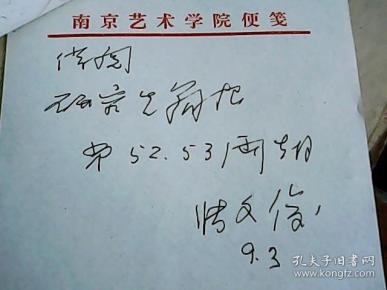 南京艺术学院便笺
借阅
研究生简报
第52.53两期
张文俊
9.3
孔夫子旧书网
www.kongfz.com